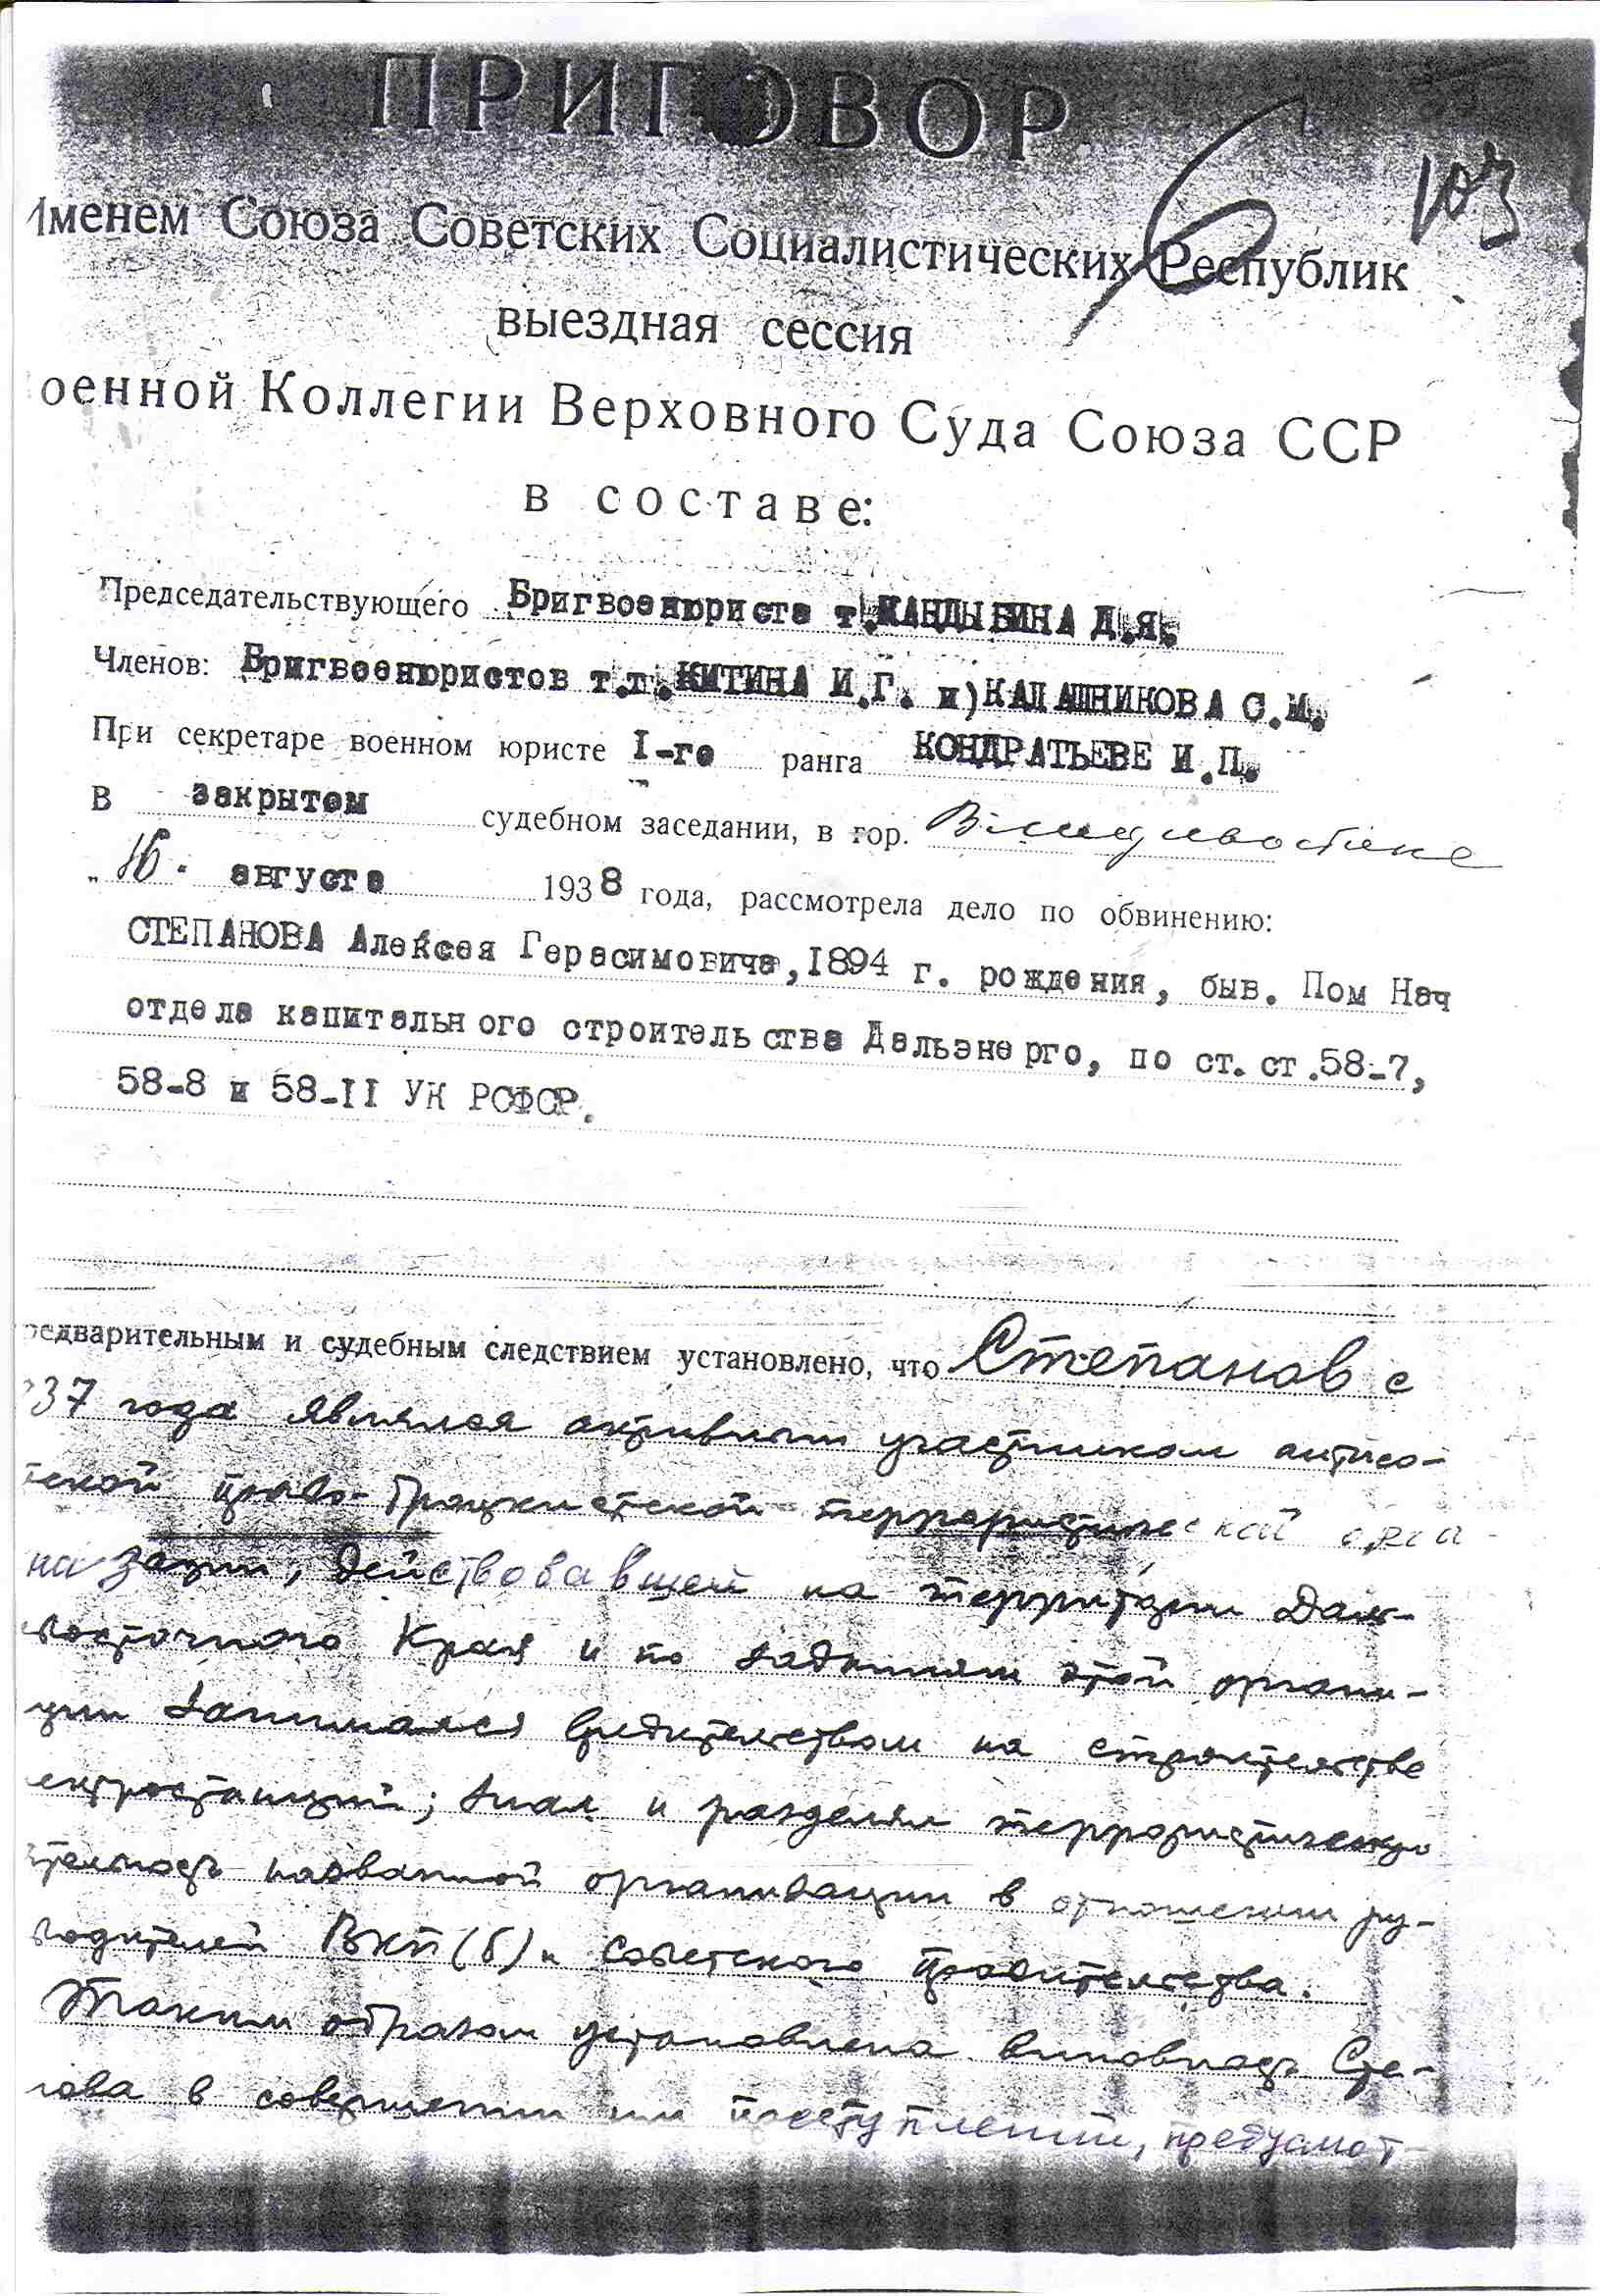 ПРИГОВОР
103
Именем Союза Советских Социалистических Республик
выездная сессия
оенной Коллегии Верховного Суда Союза ССР
в составе:
Председательствующего Бригвоенюриста т.КАНДЫБИНА Д.Я.
Членов: Бригвоенюристов т.т.КИТИНА И.Г. и)КАЛАШНИКОВА С.М.
При секретаре военном юристе I-го ранга КОНДРАТЬЕВЕ И.П.
В закрытом судебном заседании, в гор. Владивостоке
„16. августа 1938 года, рассмотрела дело по обвинению:
СТЕПАНОВА Алексея Герасимовича,1894 г. рождения, быв. Пом Нач
отдела капитального строительства Дальэнерго, по ст.ст.58-7,
58-8 и 58-II УК РСФСР.
редварительным и судебным следствием установлено, что Степанов с
37 года являлся активным участником антисо-
тской право-троцкистской террористической орга-
низации, действовавшей на территории Даль-
восточного Края и по заданиям этой органи-
ции занимался вредительством на строительстве
ектростанций; знал и разделял террористическую
ятельность названной организации в отношении ру-
водителей ВКП(б) и советского правительства.
Таким образом установлена виновность Сте-
нова в совершении им преступлений, предусмот-